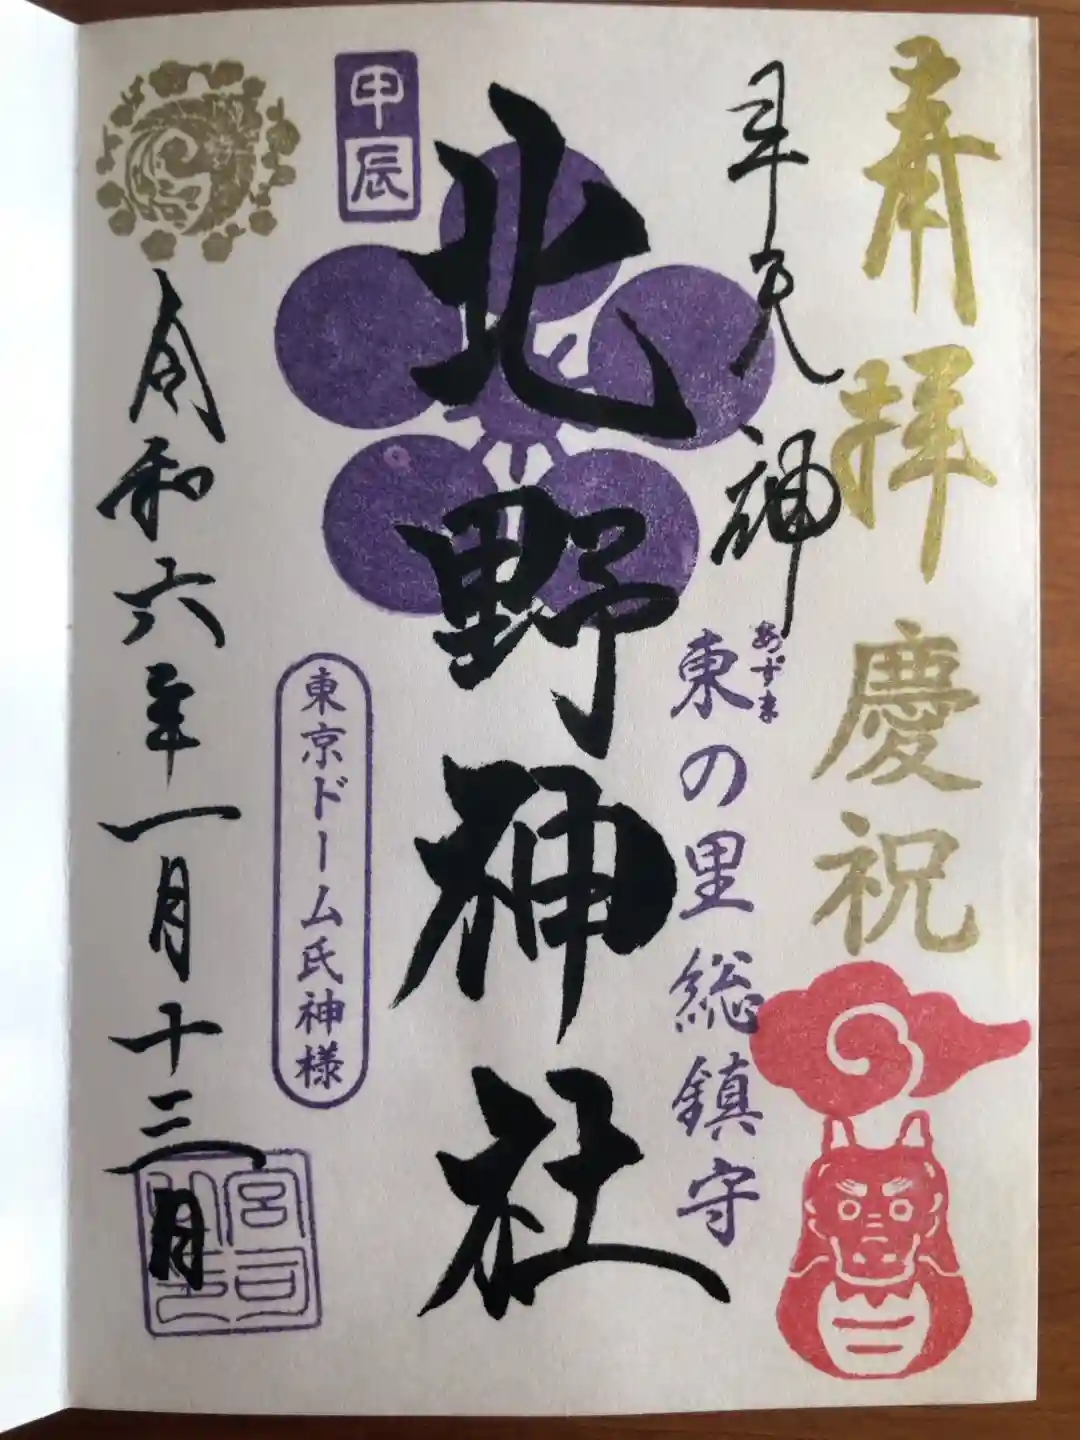 奉拝
慶祝
牛天神
あずま
東の里総鎮守
北野神社
甲辰
東京ドーム氏神様
令和六年一月十三日
宮司之印